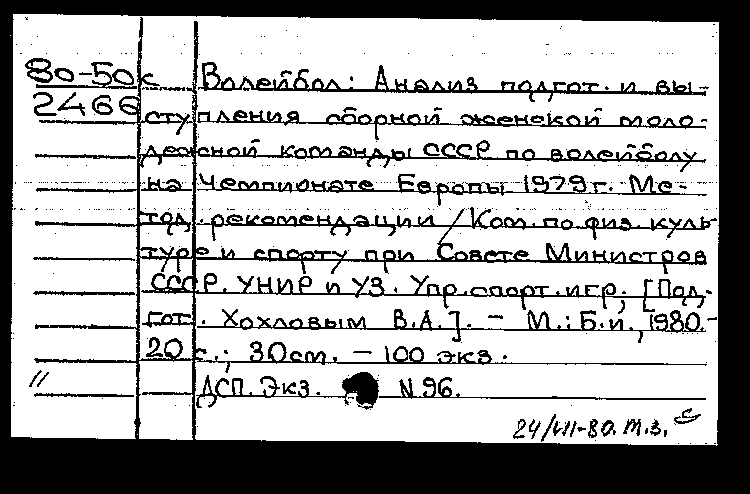 80-50к Волейбол: Анализ подгот. и вы-
2466 ступления сборной женской моло-
дежной команды СССР по волейболу
на Чемпионате Европы 1979 г. Ме-
тод. рекомендации / Ком. по физ. куль-
туре и спорту при Совете Министров
СССР. УНИР и УЗ. Упр. спорт. игр; [Под-
гот. Хохловым В.А.]. – М.: Б.и., 1980.–
20 с.; 30 см. – 100 экз.
// ДСП. Экз. N 96.
24/VII-80. т.з.